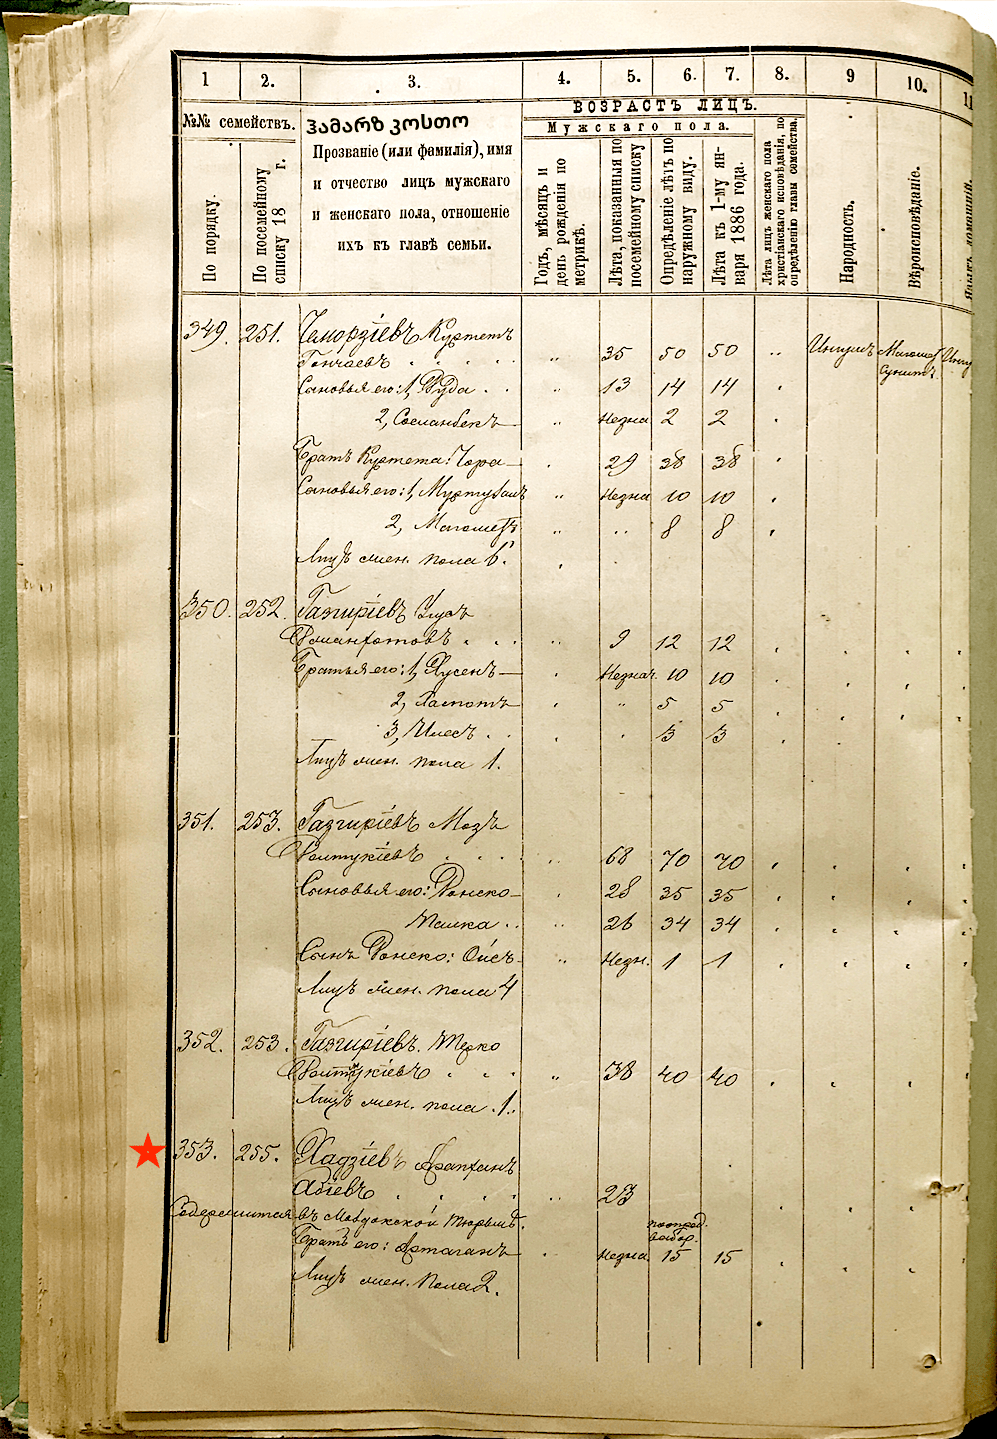 1 2. 3. 4. 5. 6. 7. 8. 9 10. 11
№№ семействъ.
По порядку.
По посемейному списку 18 г.
ჰამარზ კოსთო
Прозваніе (или фамилія), имя
и отчество лицъ мужскаго
и женскаго пола, отношеніе
ихъ къ главѣ семьи.
ВОЗРАСТЪ ЛИЦЪ.
Мужскаго пола.
Годъ, мѣсяцъ и
день рожденія по
метрикѣ.
Лѣта, показанныя по
посемейному списку
Опредѣленіе лѣтъ по
наружному виду.
Лѣта къ 1-му ян-
варя 1886 года.
Лѣта лицъ женскаго пола
христіанскаго исповѣданія, по
опредѣленію главы семейства.
Народность.
Вѣроисповѣданіе.
Языкъ домашній.
349. 251. Куртетъ
Гончаевъ 35 50 50 Ингушъ Магомет Ингу
Сунитъ
Сыновья его: 1, Дуда 13 14 14
2, Сосланбекъ Незна 2 2
Братъ Куртета: Чора 29 38 38
Сыновья его: 1, Муртузалъ Незна 10 10
2, Магометъ 8 8
Лицъ жен. пола 6.
350. 252. Газгиріевъ
9 12 12
Братья его: 1, Хусенъ Незнач. 10 10
2, 5 5
3, Илесъ 3 3
Лицъ жен. пола 1.
351. 253. Газгиріевъ Мазъ
68 70 70
Сыновья его: 28 35 35
26 34 34
Сынъ Незн. 1 1
Лицъ жен. пола 4
352. 253. Газгиріевъ. Терко
38 40 40
Лицъ жен. пола 1.
353. 255. Хадзіевъ Арапханъ
Абіевъ 23
Содержится въ Моздокской тюрьмѣ.
Братъ его: Артаганъ Незна 15 15
Лицъ жен. пола 2.